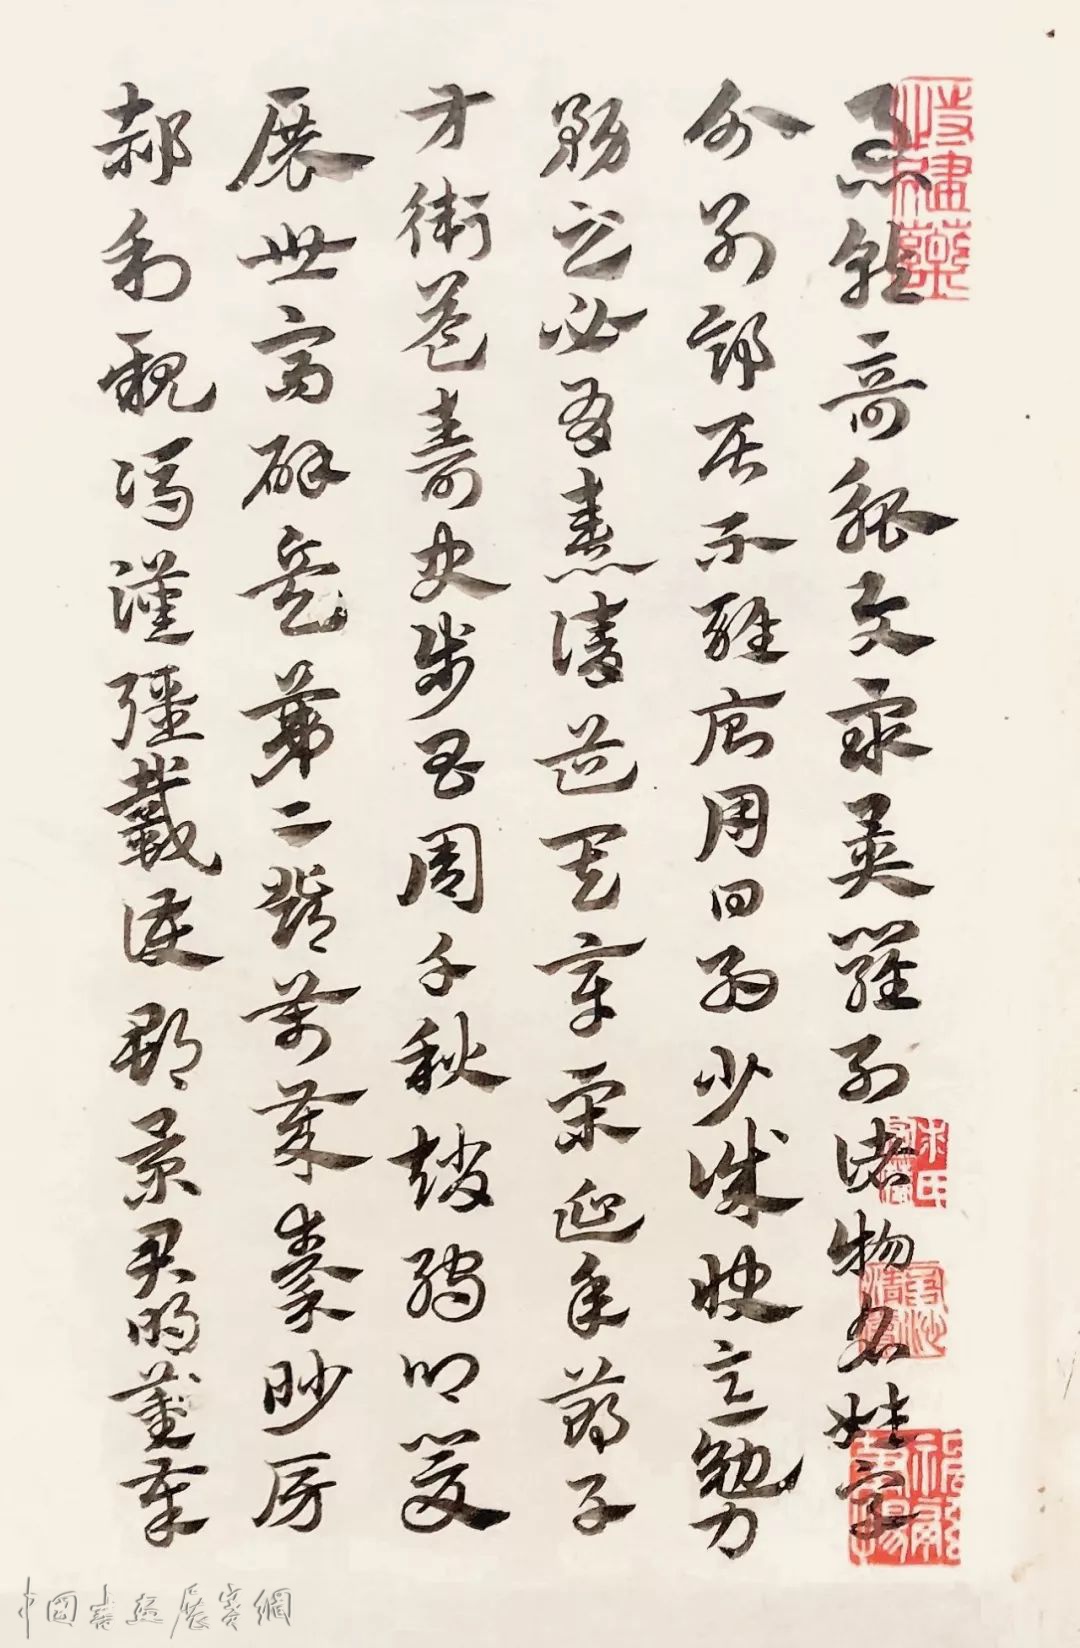 急就奇觚與衆異羅列諸物名姓字
分別部居不雜廁用日約少誠快意勉力
務之必有憙請道其章宋延年鄭子
方衛益壽史步昌周千秋趙孺卿爰
展世高辟兵第二鄧萬歲秦眇房
郝利親馮漢彊戴護郡景君明董奉
中國書畫展賽網